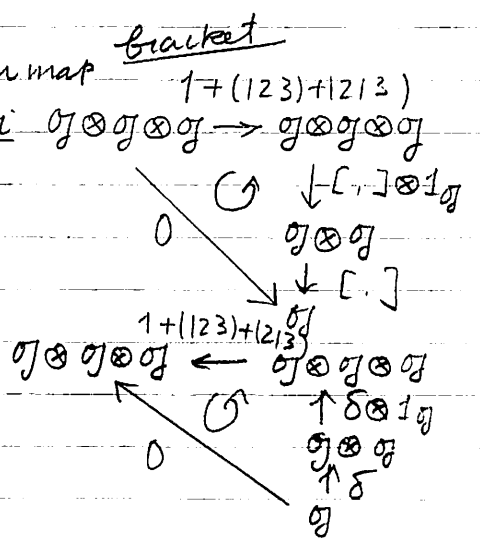 bracket
map
1+(123)+(213)
𝔤⊗𝔤⊗𝔤 → 𝔤⊗𝔤⊗𝔤
↺ ↓[,]⊗1𝔤
0 𝔤⊗𝔤
↓ [,]
𝔤
1+(123)+(213)
𝔤⊗𝔤⊗𝔤 ← 𝔤⊗𝔤⊗𝔤
↺ ↑δ⊗1𝔤
0 𝔤⊗𝔤
↑δ
𝔤